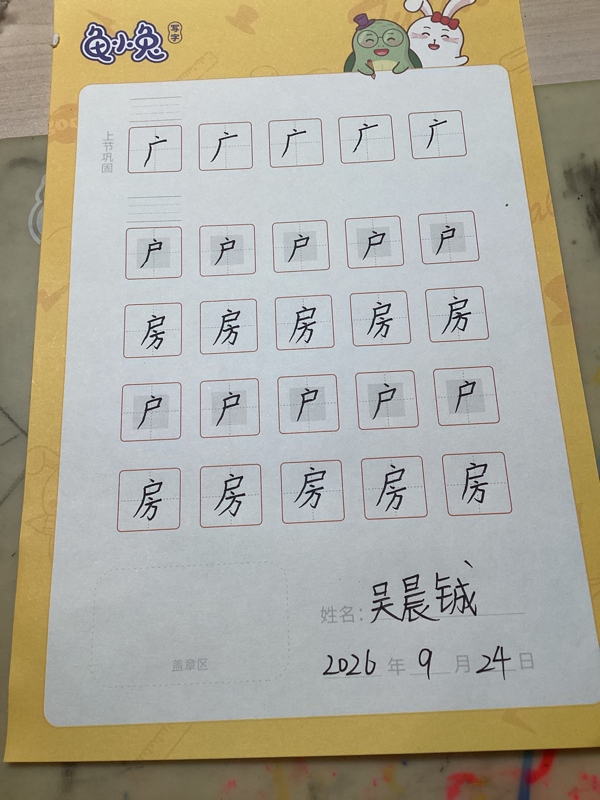 龟小兔写字
上节巩固
广 广 广 广 广
户 户 户 户 户
房 房 房 房 房
户 户 户 户 户
房 房 房 房 房
姓名：吴晨铖
盖章区
2026年9月24日